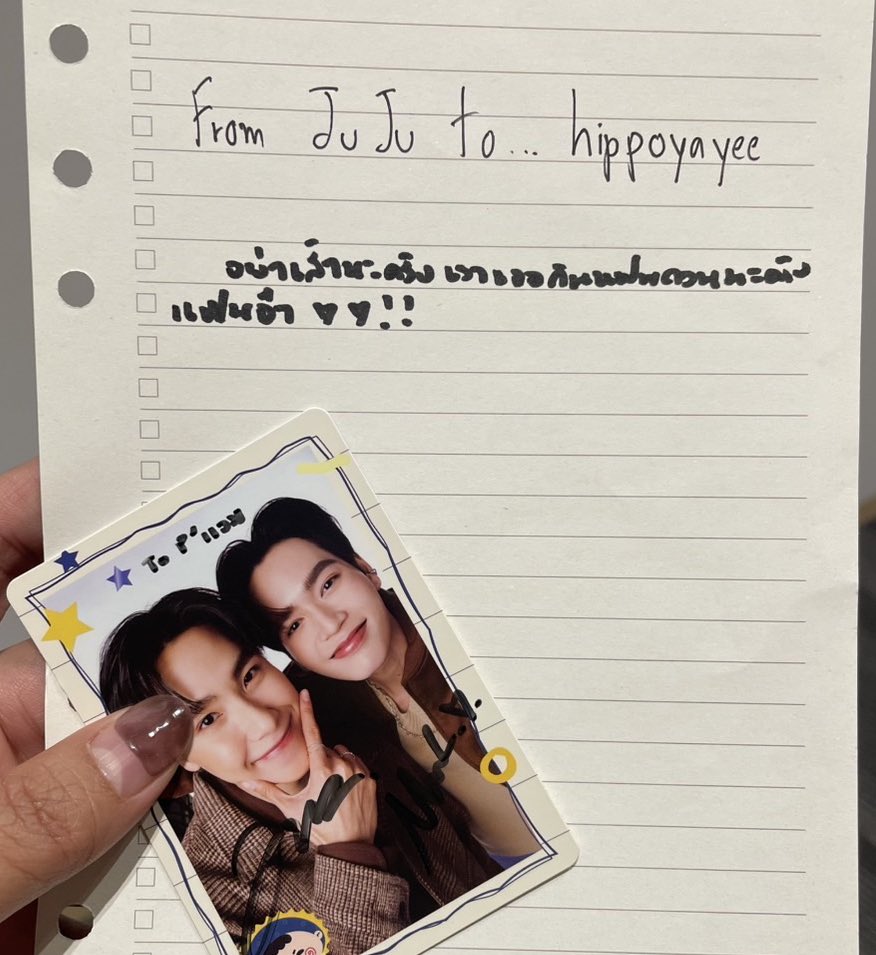 From JuJu to... hippoyayee
อย่าเศร้านะครับ เราเจอกันแฟนคอนนะครับ
แฟนจ๋า ♥ ♥!!
To P'